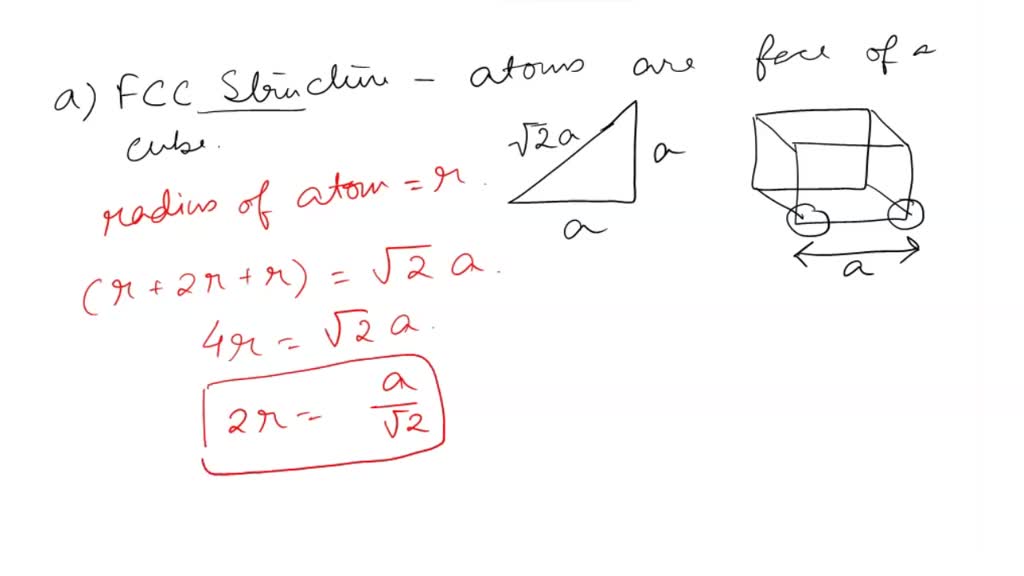 a) FCC Structure - atoms are face of a
cube.
√2a
a
a
a
radius of atom = r.
(r + 2r + r) = √2 a.
4r = √2 a.
2r = a/√2